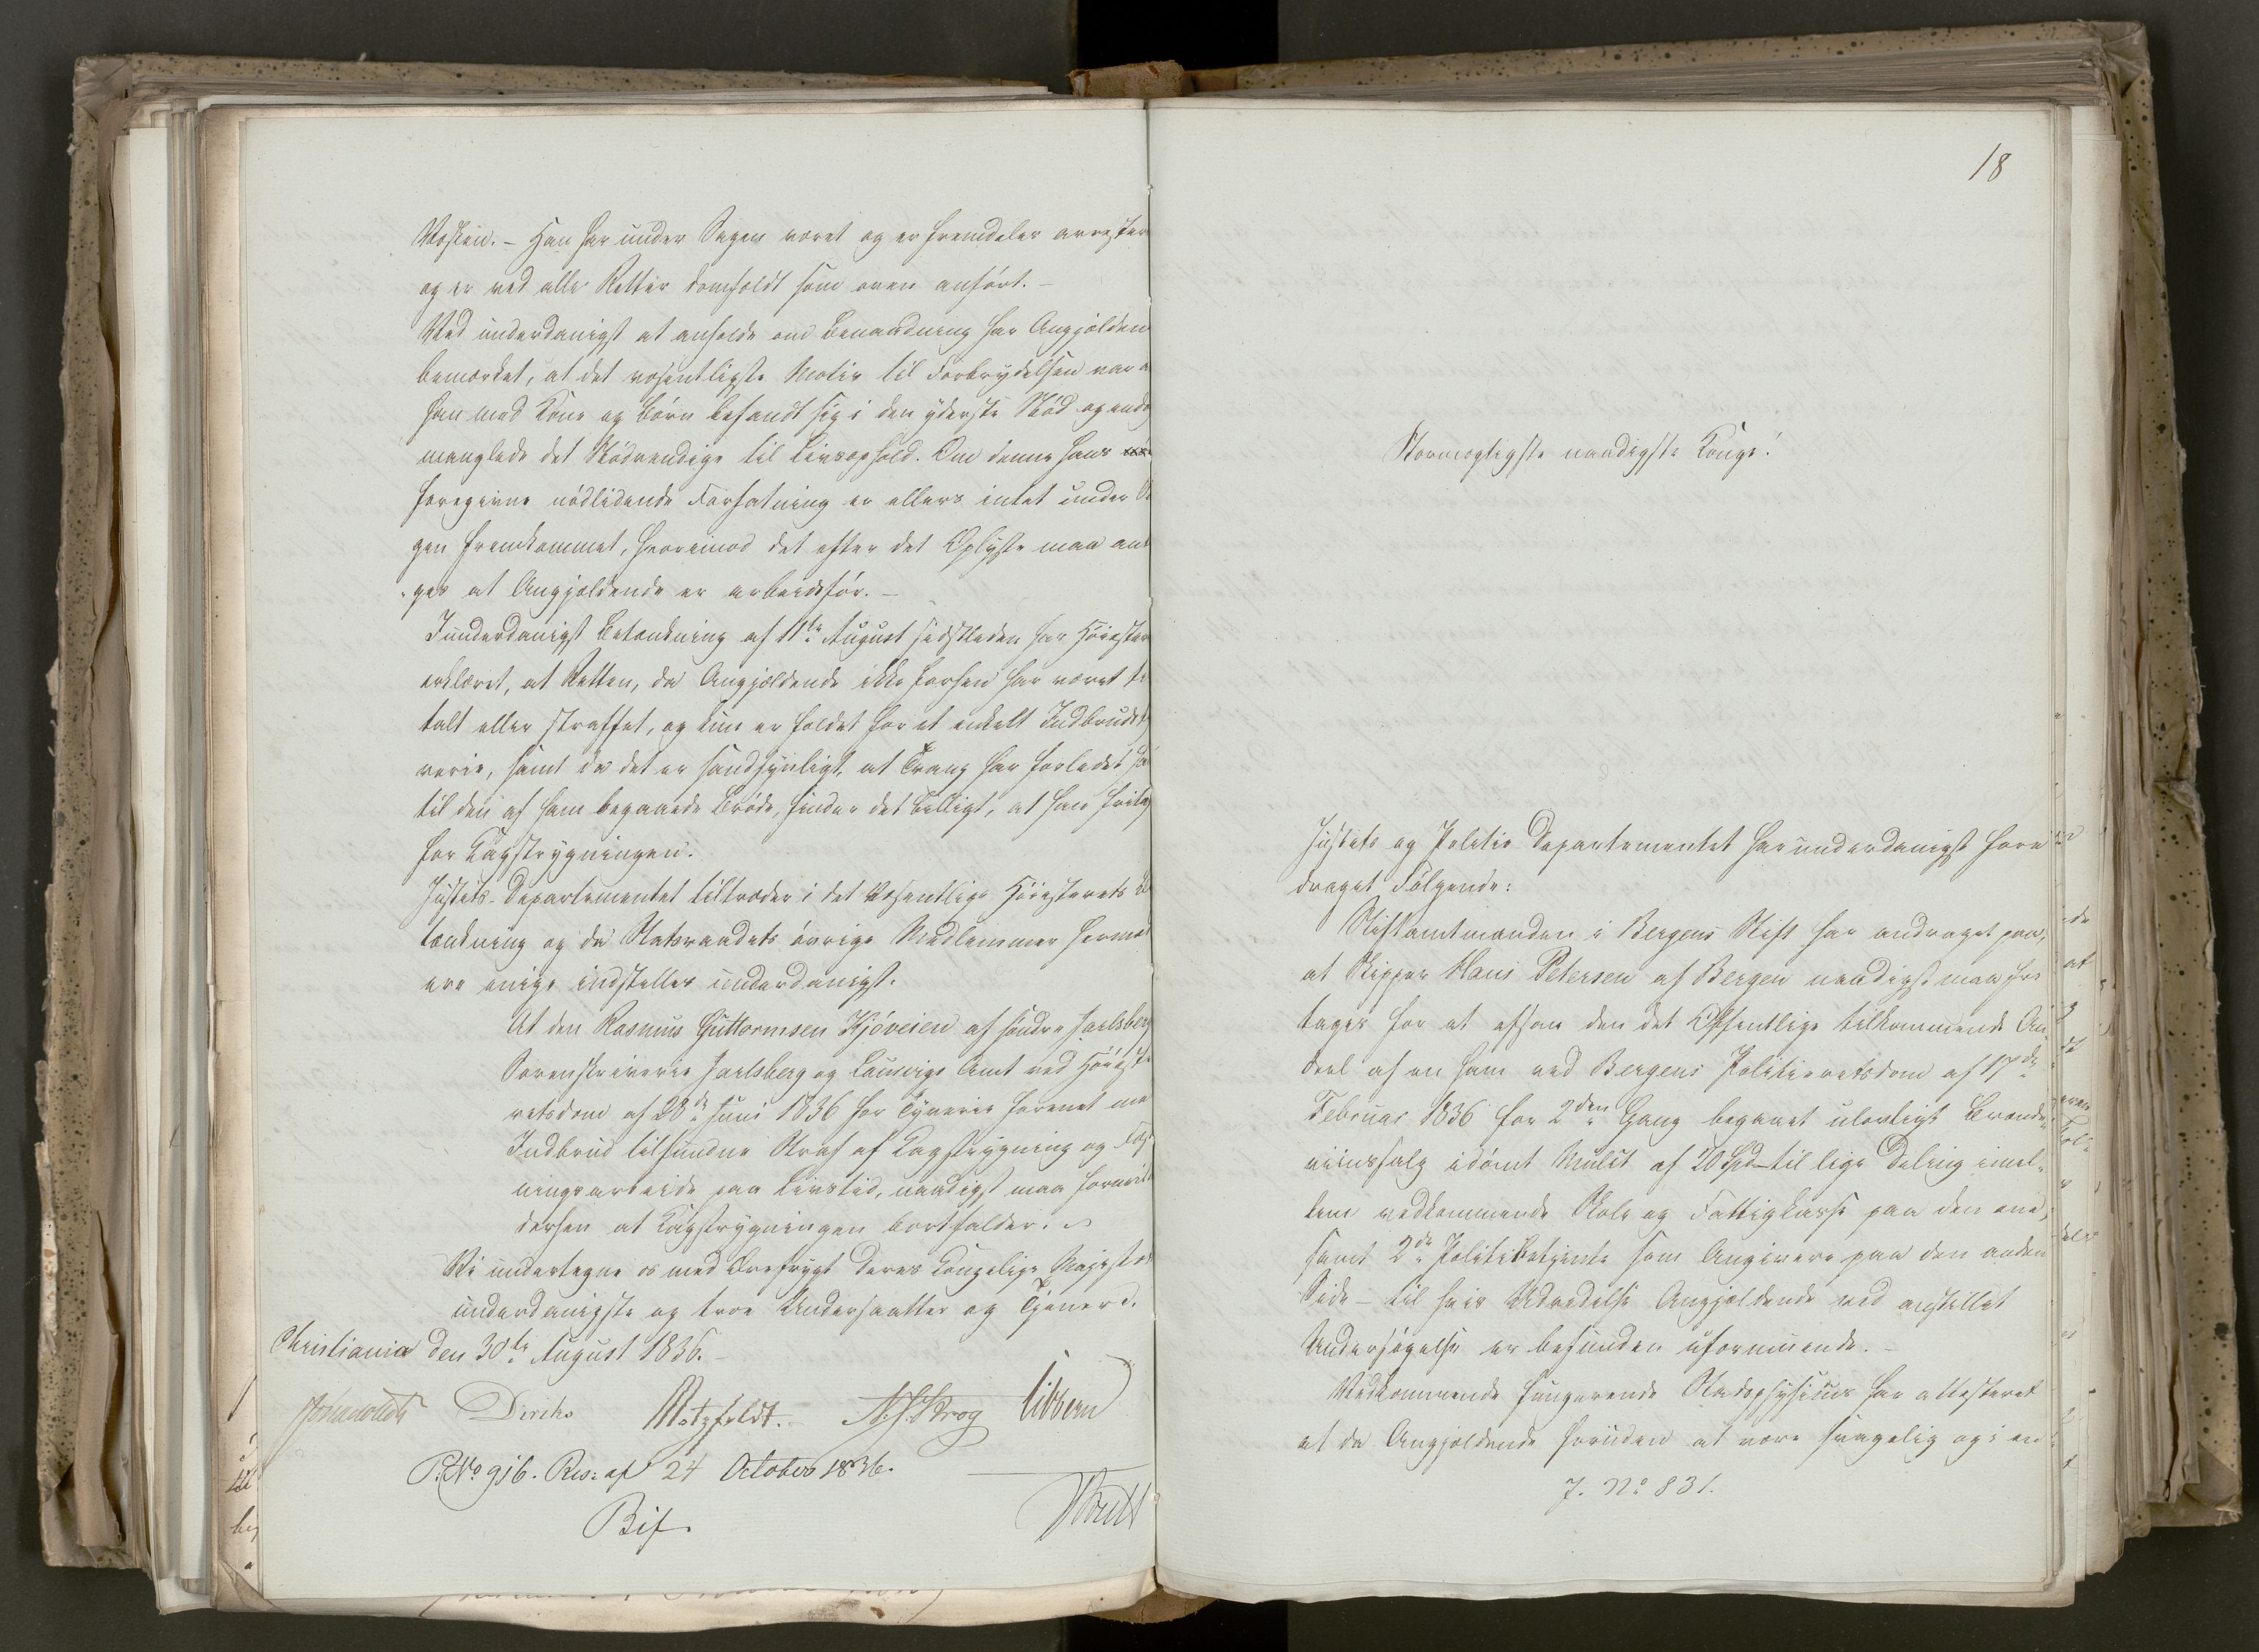 Vosten. – Han har under Sagen været og er fremdeles arrester
og er ved alle Retter domfældt som oven anført. –
Ved underdanigst at anholde om Benaadning har Angjelden
bemærket, at det væsentligste Motiv til Forbrydelsen var a
han med Kone og Børn befandt sig i den yderste Nød og endog
manglede det Nødvendige til Livsophold. Om denne hans
foregivne nødlidende Forfatning er ellers intet under Sa
gen fremkommet, hvorimod det efter det Oplyste maa anta
ges at Angjeldende er arbeidsfør. –
I underdanigst Betænkning af 11te August sidstleden har Høiester
erklæret, at Retten, da Angjeldende ikke forhen har været til
talt eller straffet, og kun er fældet for et enkelt Indbrudsty
verie, samt da det er sandsynligt, at Trang har forledet ha
til den af ham begaaede Brøde, finder det billigt, at han fritages
for Kagstrygningen.
Justits-Departementet tiltræder i det Væsentlige Høiesterets Be
tænkning og da Statsraadets øvrige Medlemmer hermed
ere enige indstilles underdanigst:
At den Rasmus Guttormsen Kjøveien af søndre Jarlsberg
Sorenskriverie Jarlsberg og Laurvigs Amt ved Høieste
retsdom af 28de Juni 1836 for Tyverie forenet me
Indbrud tilfundne Straf af Kagstrygning og Fæst
ningsarbeide paa Livstid, naadigst maa formild
dershen at Kagstrygningen bortfalder.
Vi undertegne os med Ærefrygt Deres Kongelige Majestæts
underdanigste og troe Undersaatter og Tjenere.
Christiania den 30te August 1836. –
Jonas Collett Diriks Motzfeldt. N. J. Krog Sibbern
P. No 916. Res: af 24 October 1836.
Bif.
18
Stormægtigste naadigste Konge!
Justits og Politie Departementet har underdanigst fore
draget Følgende:
Stiftamtmanden i Bergens Stift har andraget paa,
at Skipper Hans Petersen af Bergen naadigst maa fri
tages for at afsone den det Offentlige tilkommende An
deel af en ham ved Bergens Politieretsdom af 17de
Februar 1836 for 2den Gang begaaet ulovligt Brænde
viinssalg idømt Mulct af 20 Spd – til lige Deling imel
lem vedkommende Skole og Fattigkasse paa den ene,
samt 2de Politibetjente som Angivere paa den anden
Side – til hvis Udredelse Angjeldende ved anstillet
Undersøgelse er befunden uformuende. –
Vedkommende fungerende Stadsphysicus har attesteret
at da Angjeldende foruden at være svagelig og i en
J. No 831.